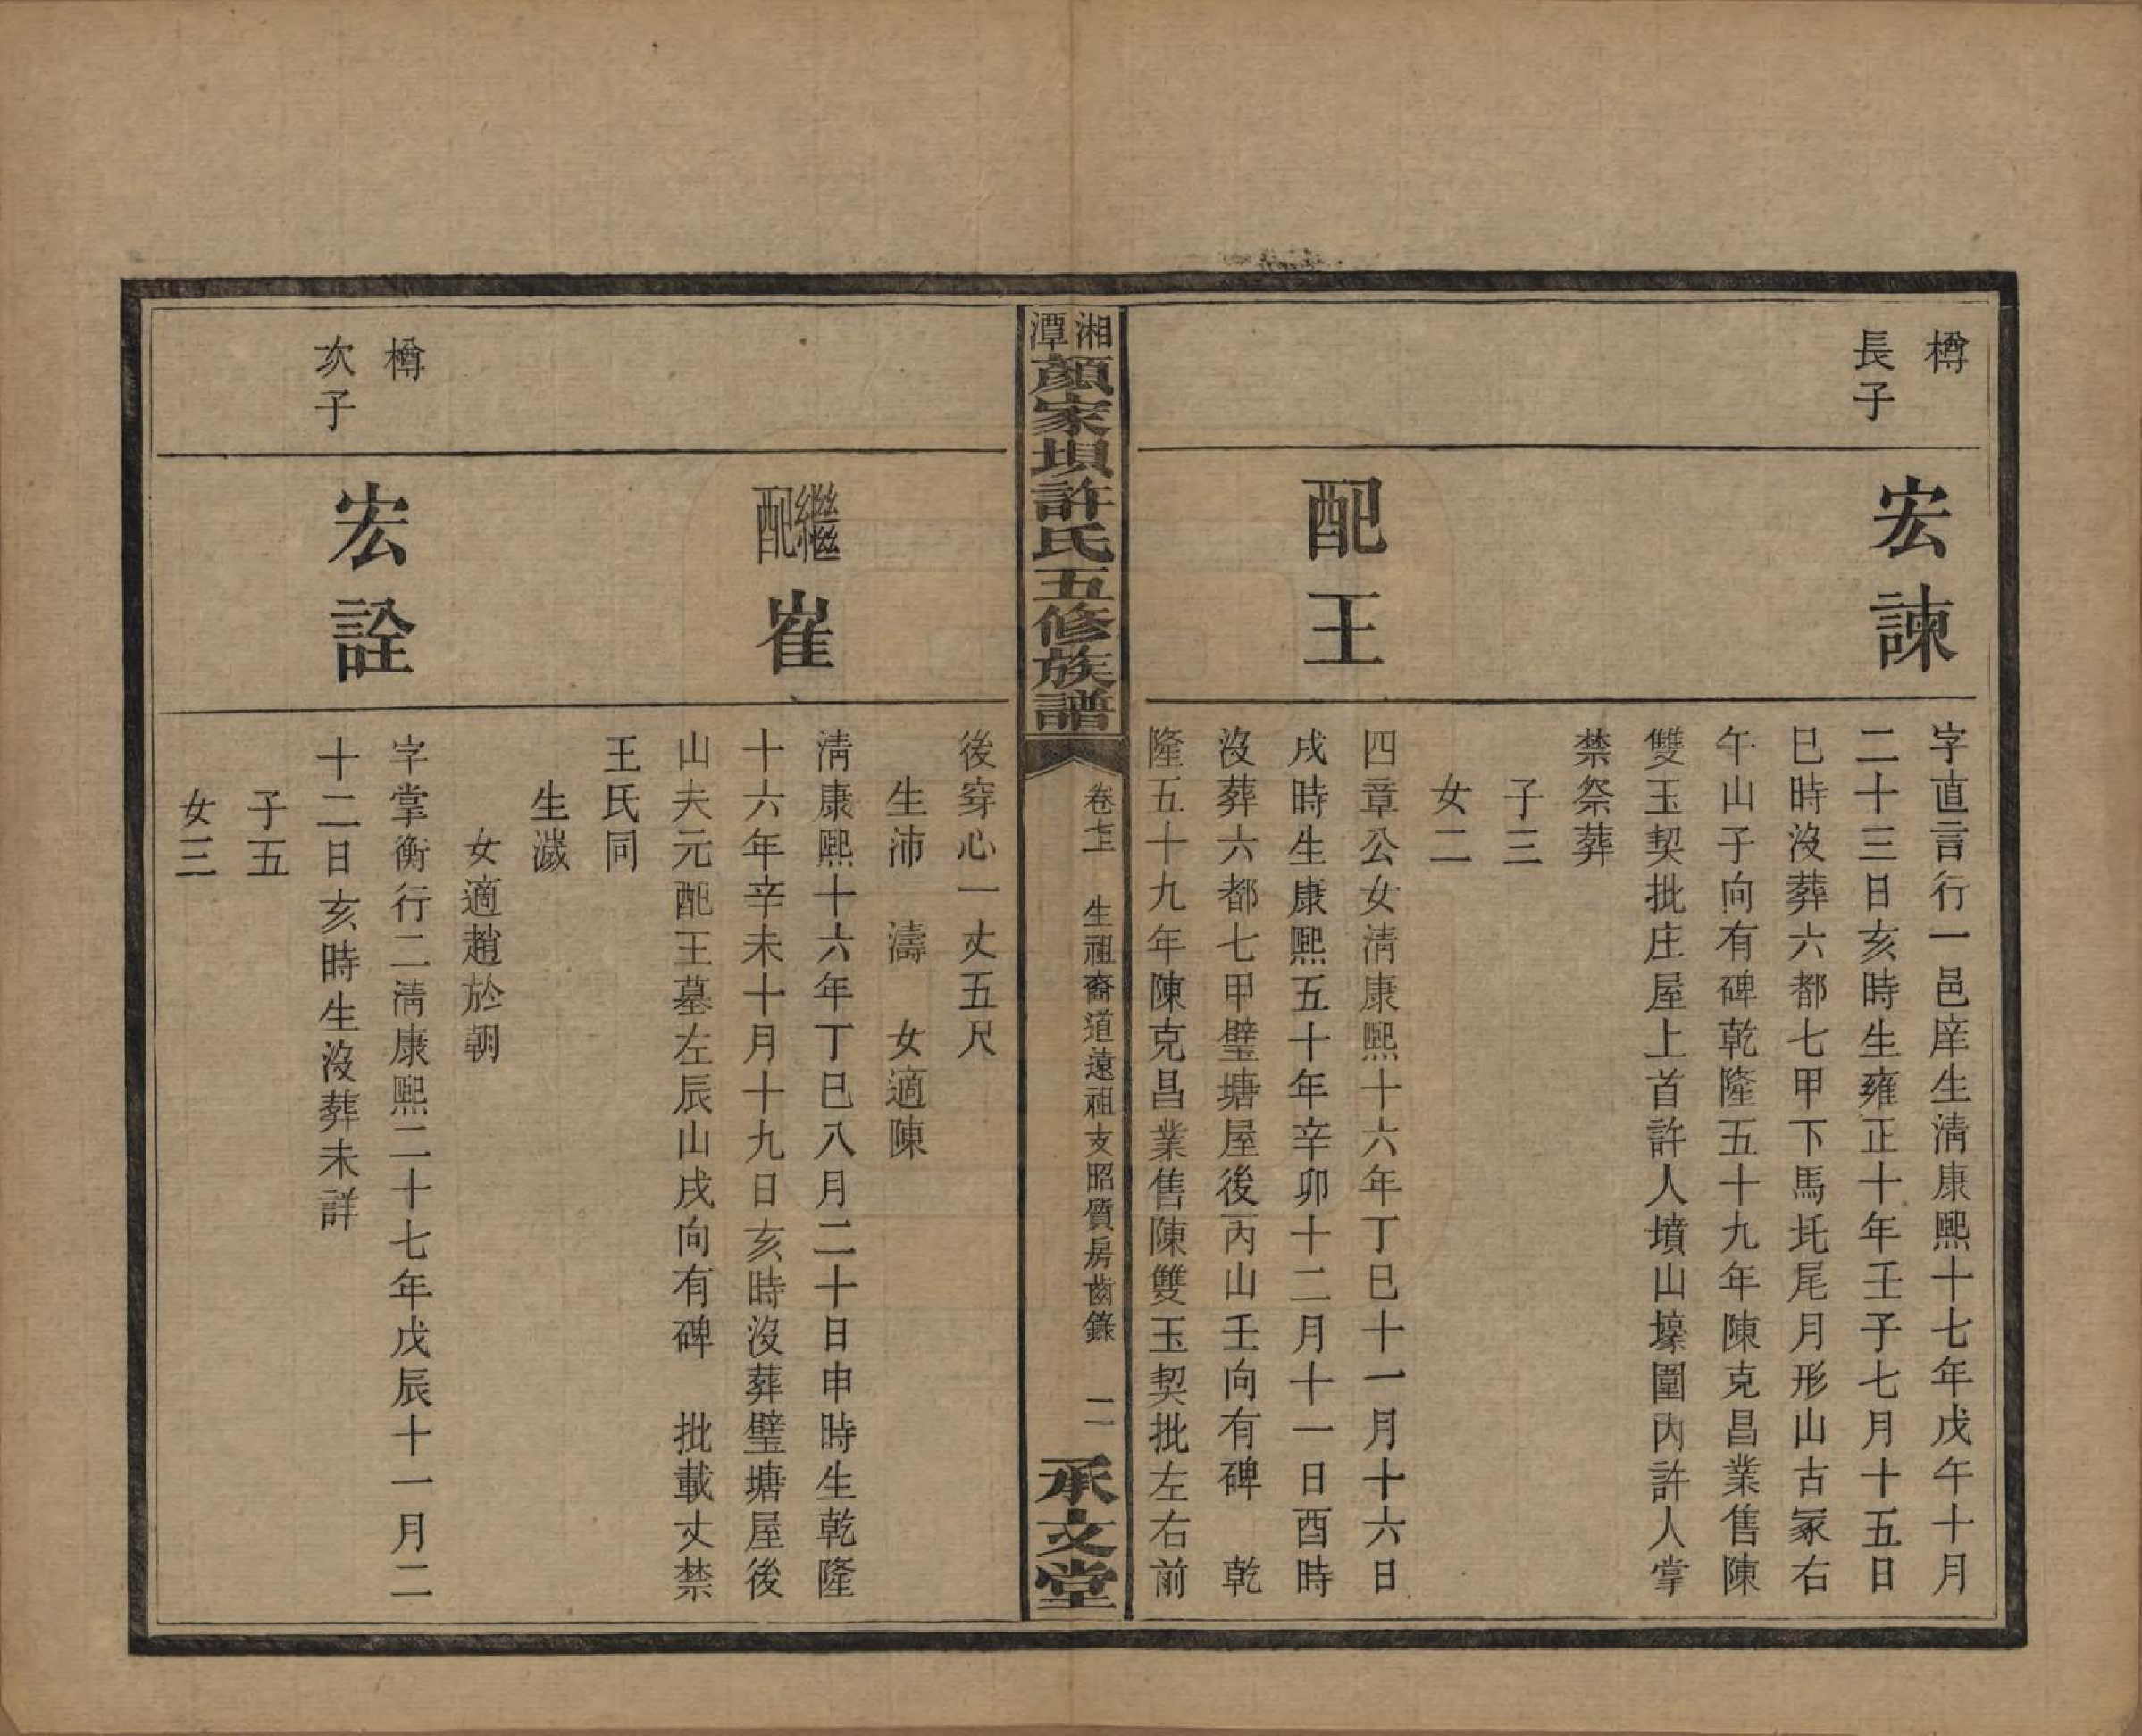 樽
長子
宏諫
字直言行一邑庠生淸康熙十七年戊午十月
二十三日亥時生雍正十年壬子七月十五日
巳時沒葬六都七甲下馬圫尾月形山古冢右
午山子向有碑乾隆五十九年陳克昌業售陳
雙玉契批庄屋上首許人墳山壕圍內許人掌
禁祭葬
子三
女二
配王
四章公女淸康熙十六年丁巳十一月十六日
戌時生康熙五十年辛卯十二月十一日酉時
沒葬六都七甲璧塘屋後丙山壬向有碑 乾
隆五十九年陳克昌業售陳雙玉契批左右前
湘潭顏家壩許氏五修族譜
卷七上 生祖裔道遠祖支昭質房齒錄 二
承文堂
後穿心一丈五尺
生沛 濤 女適陳
繼配崔
淸康熙十六年丁巳八月二十日申時生乾隆
十六年辛未十月十九日亥時沒葬璧塘屋後
山夫元配王墓左辰山戌向有碑 批載丈禁
王氏同
生濊
女適趙於朝
樽
次子
宏詮
字掌衡行二淸康熙二十七年戊辰十一月二
十二日亥時生沒葬未詳
子五
女三